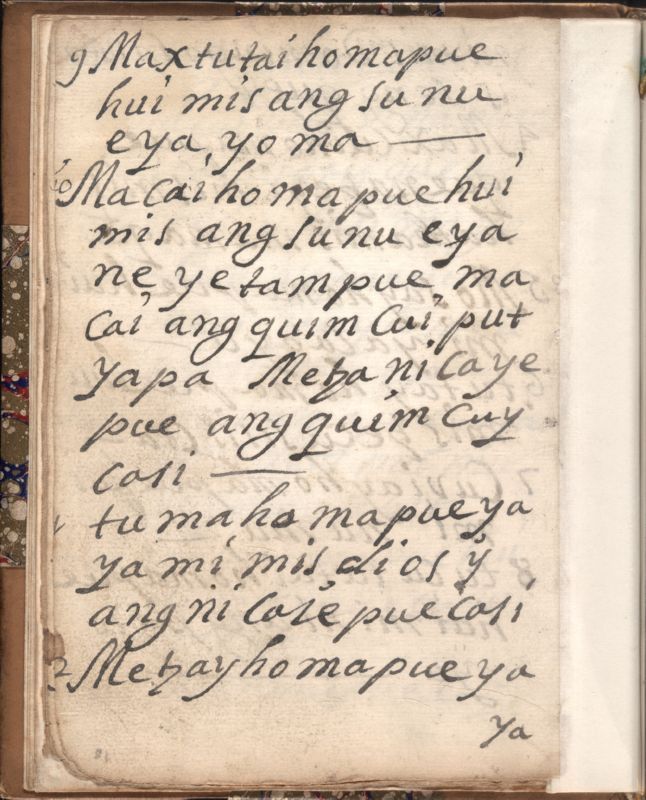 9 Maxtutaí homapue
huí mis ang sunu
eya, yoma —
10 Macaí homapue huí
mis ang sunu eya
ne yetampue ma
caí ang quim Cuí put
yapa Metza ni Caye
pue ang quim Cuy
cosi —
tumaho mapue ya
ya mí mis dios ÿ
ang ni Cosepue Cosi
2 Metzay homapue ya
ya